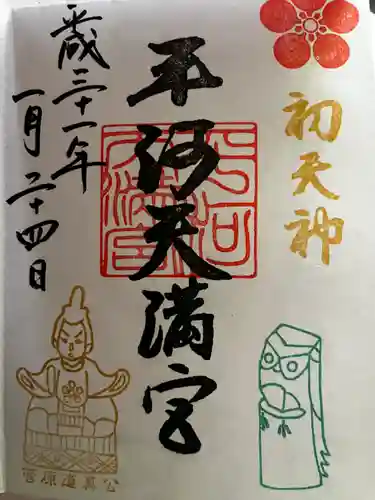 初天神
平河天満宮
平河
天満宮
平成三十一年
一月二十四日
菅原道真公